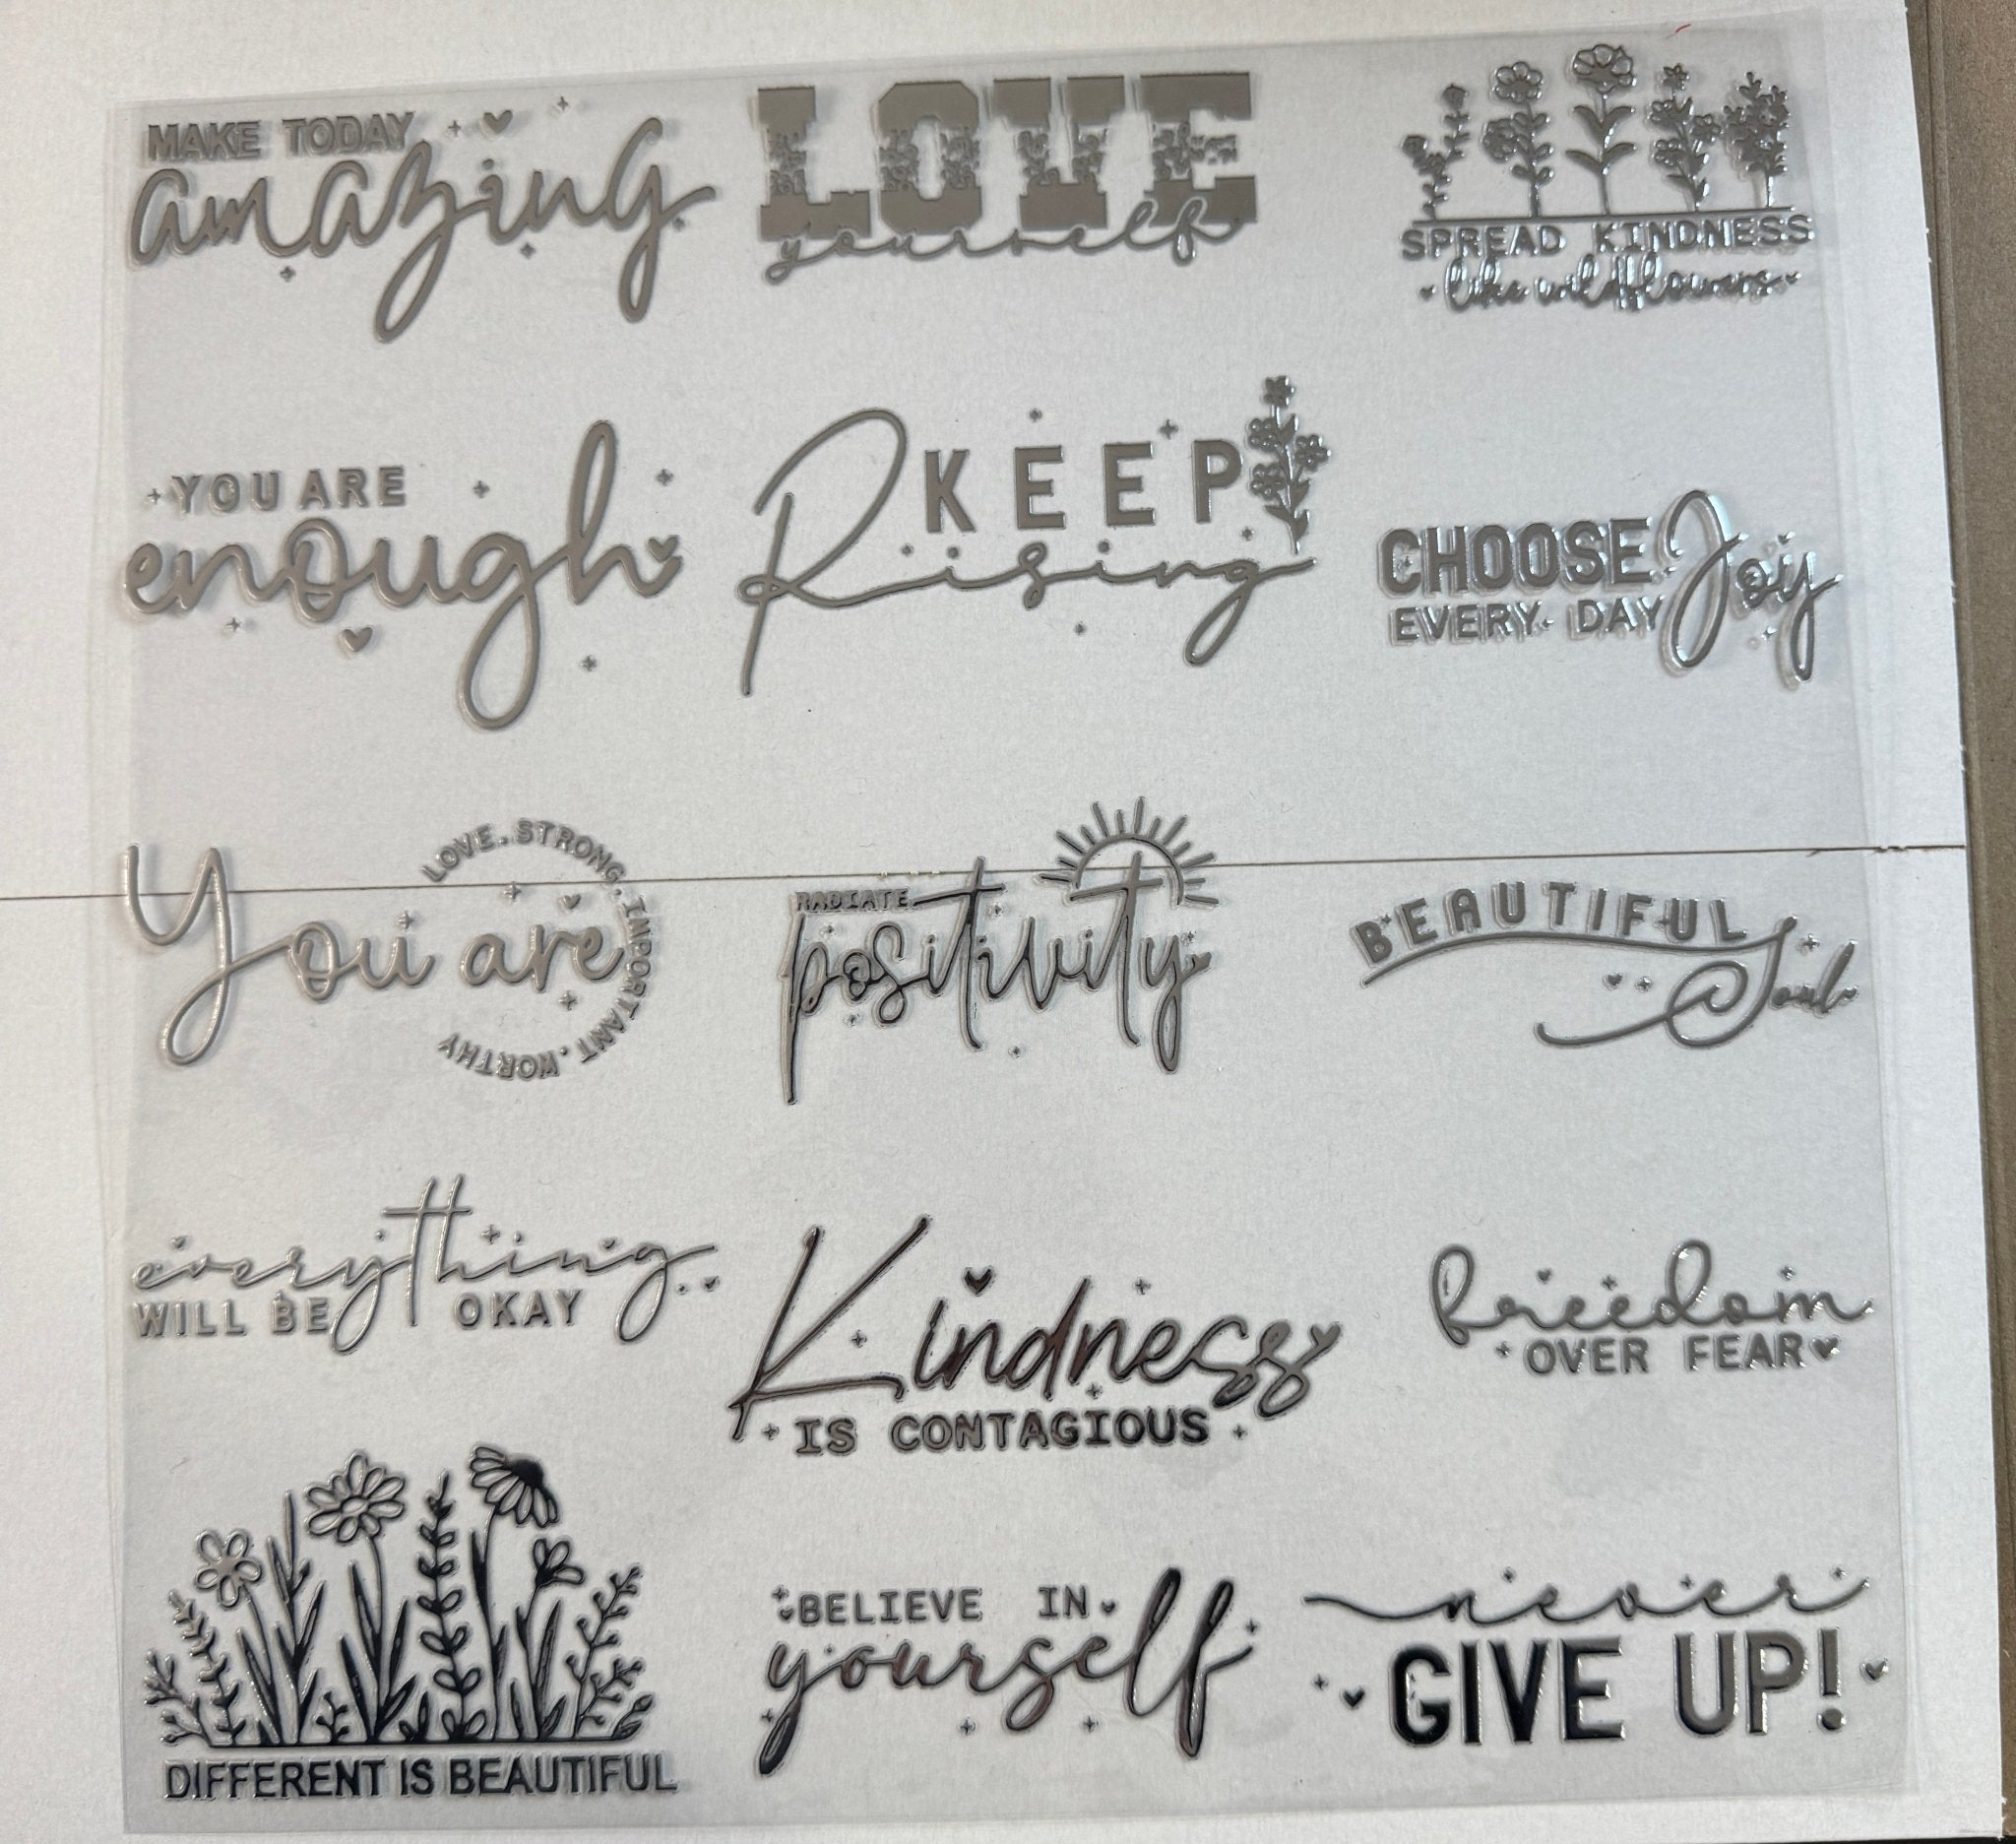 MAKE TODAY
amazing
LOVE
yourself
SPREAD KINDNESS
like wildflowers
YOU ARE
enough
KEEP
Rising
CHOOSE Joy
EVERY DAY
You are
LOVE.STRONG.INPORTANT.WORTHY
RADIATE
positivity
BEAUTIFUL
Soul
everything
WILL BE OKAY
Kindness
IS CONTAGIOUS
freedom
OVER FEAR
DIFFERENT IS BEAUTIFUL
BELIEVE IN
yourself
never
GIVE UP!